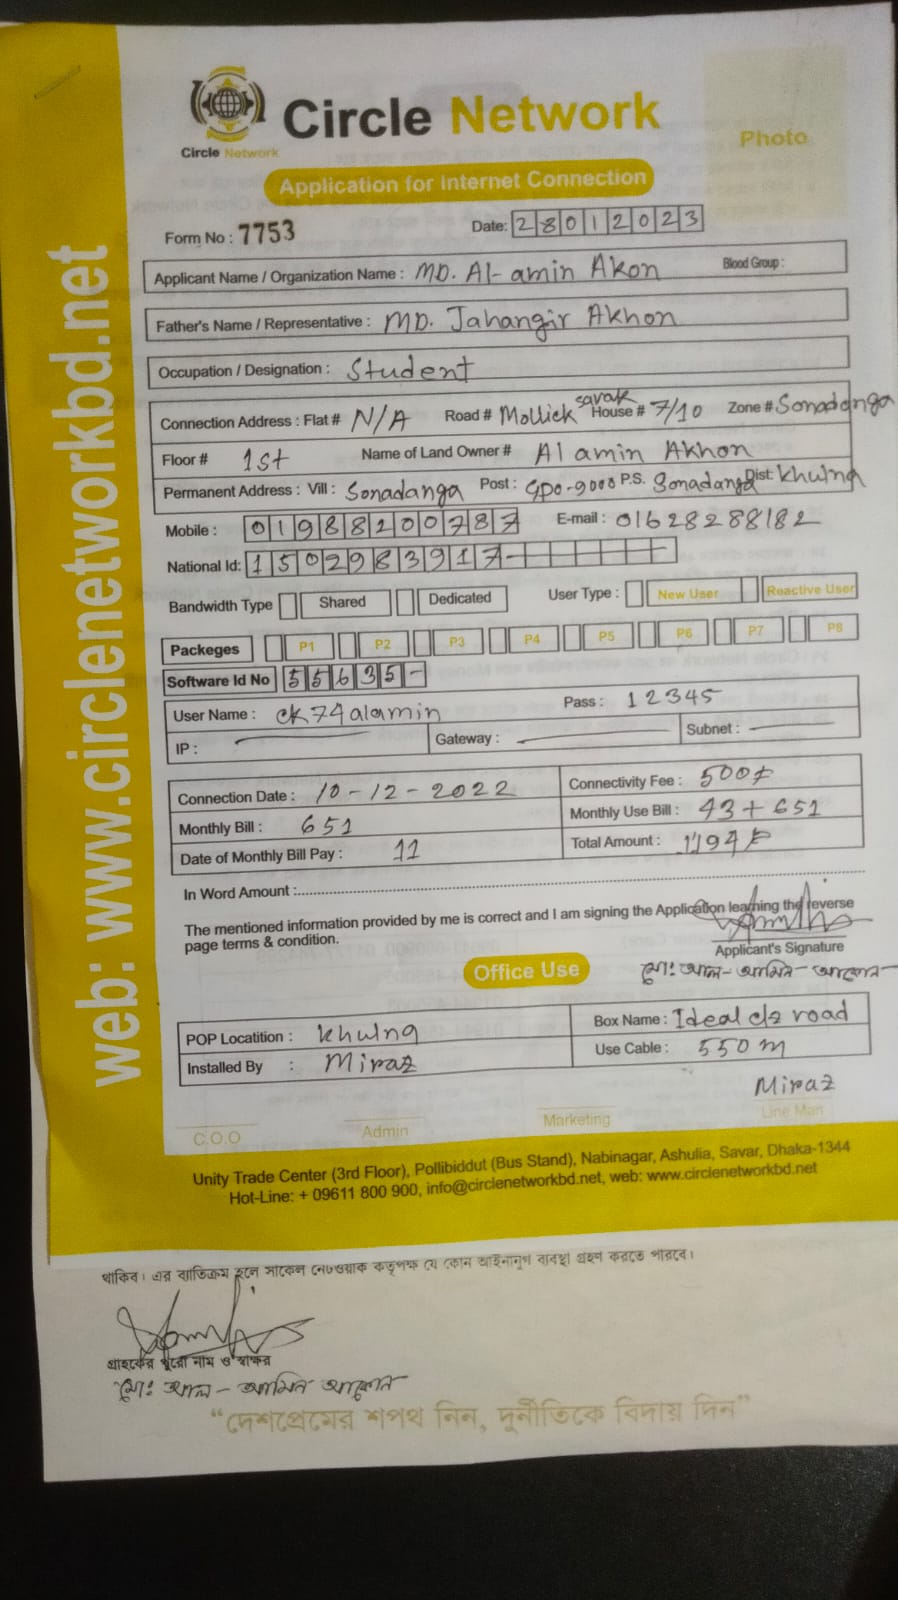 web: www.circlenetworkbd.net
Circle Network
Circle Network
Photo
Application for Internet Connection
Form No : 7753
Date: 28012023
Applicant Name / Organization Name : MD. Al-amin Akon Blood Group :
Father's Name / Representative : MD. Jahangir Akhon
Occupation / Designation : Student
Connection Address : Flat # N/A Road # Mollick sarak House # 7/10 Zone # Sonadanga
Floor # 1st Name of Land Owner # Al amin Akhon
Permanent Address : Vill : Sonadanga Post : GPO-9000 P.S. Sonadanga Dist: Khulna
Mobile : 01988200787 E-mail : 01628288182
National Id: 1502983917-
Bandwidth Type Shared Dedicated User Type : New User Reactive User
Packeges P1 P2 P3 P4 P5 P6 P7 P8
Software Id No 55635-
User Name : ck74alamin Pass : 12345
IP : Gateway : Subnet :
Connection Date : 10-12-2022 Connectivity Fee : 500৳
Monthly Bill : 651 Monthly Use Bill : 43+651
Date of Monthly Bill Pay : 11 Total Amount : 1194৳
In Word Amount :
The mentioned information provided by me is correct and I am signing the Application learning the reverse
page terms & condition.
Applicant's Signature
Office Use
মো: আল-আমিন-আকোন
POP Locatition : Khulna Box Name : Ideal road
Installed By : Miraz Use Cable : 550m
Miraz
C.O.O Admin Marketing Line Man
Unity Trade Center (3rd Floor), Pollibiddut (Bus Stand), Nabinagar, Ashulia, Savar, Dhaka-1344
Hot-Line: + 09611 800 900, info@circlenetworkbd.net, web: www.circlenetworkbd.net
থাকিব। এর ব্যতিক্রম হলে সার্কেল নেটওয়ার্ক কর্তৃপক্ষ যে কোন আইনানুগ ব্যবস্থা গ্রহণ করতে পারবে।
গ্রাহকের পুরো নাম ও স্বাক্ষর
মো: আল-আমিন আকোন
“দেশপ্রেমের শপথ নিন, দুর্নীতিকে বিদায় দিন”